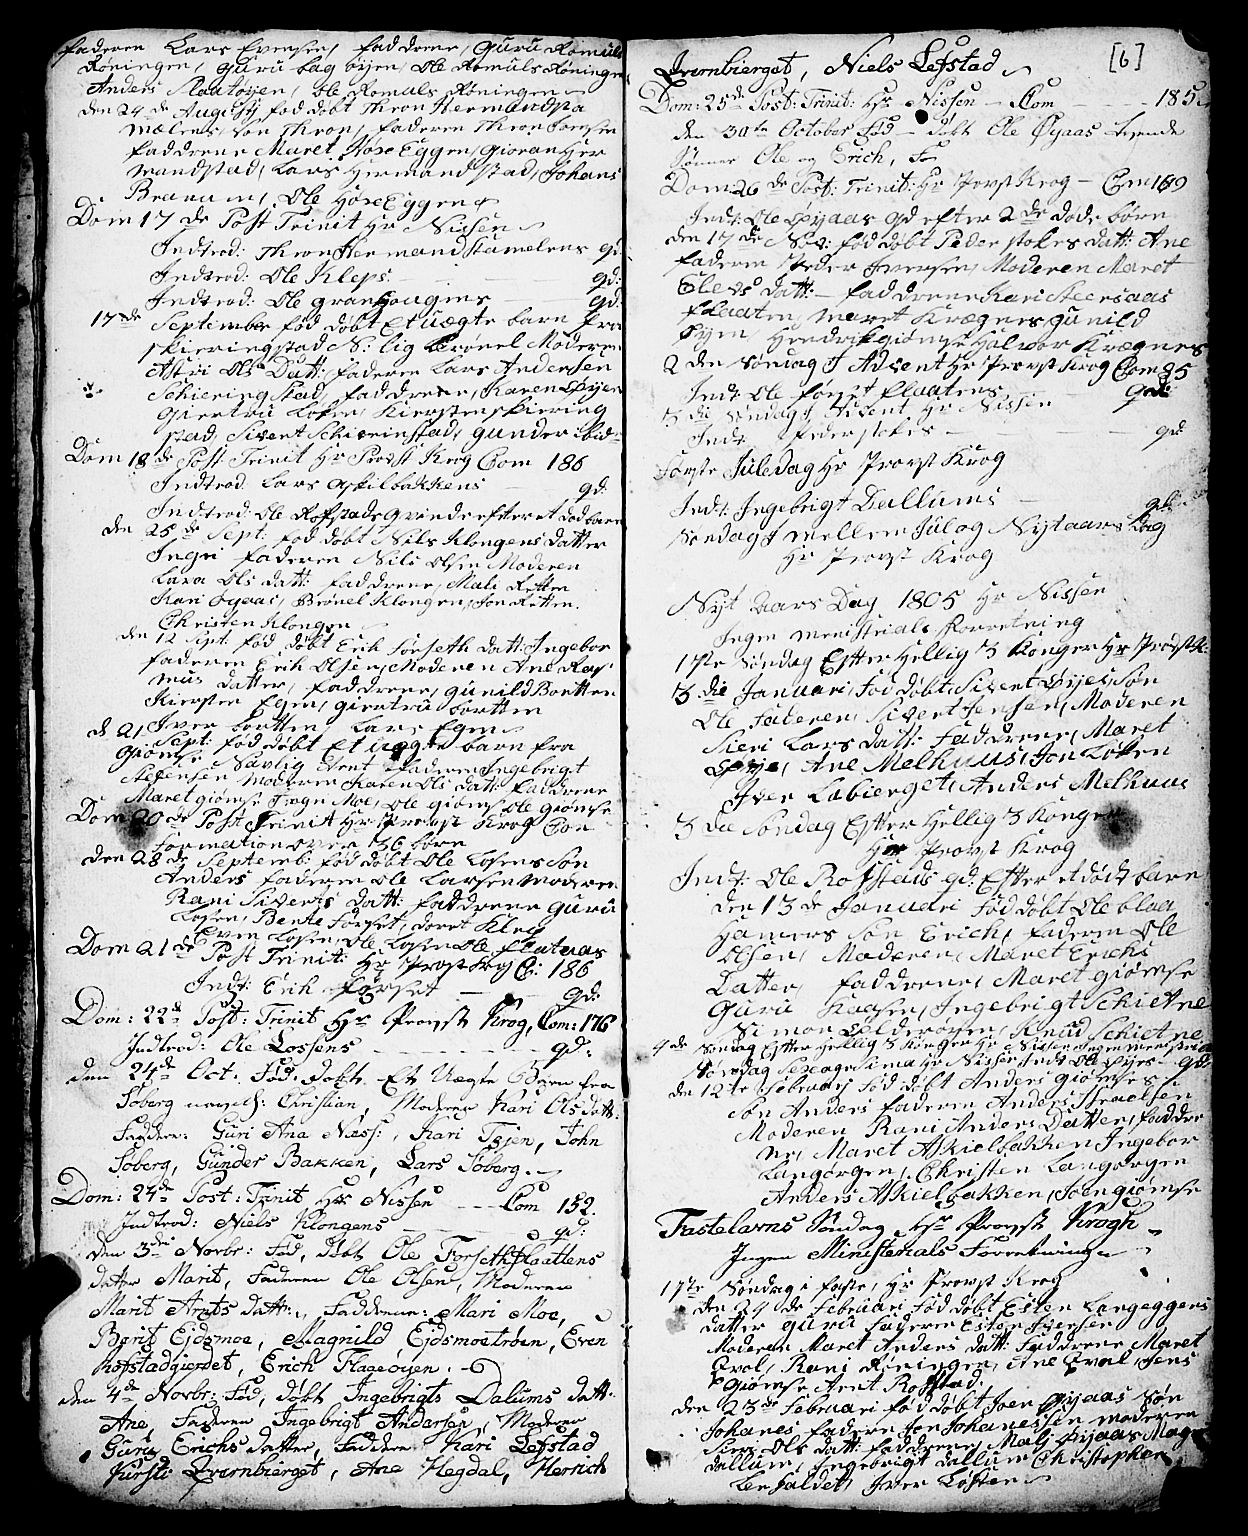 faderen Lars Evensen, faddrene, Guru Romuls
Røningen, Guru bag øijen, Ole Romuls Røningen
Anders Sloutøyen, Ole Romuls Røningen
den 24 de August fød døbt Thron Hermandsta
mælens, søn Thron, faderen Thron Joensen
faddrene Maret Høse Eggen, gioran Her
mandstad, Lars Hermandstad, Johans
Ole Høse Eggen
Dom 17 de Post Trinit Hr Nissen
Indtrod: Thron Hermandstamelens gd:
Indtrod: Ole Kleps gd:
Indtrod: Ole granhougens gd:
17 de September fød døbt Et uægte barn fra
Skieringstad N: lig Brønel Moderen
Astri Ols Datt: faderen Lars Andersen
Schieringstad, faddrene, Karen Øijen
giertru Løken, Kiersten skiering
stad, Sivert Schieringstad, gunder ibid:
Dom 18 de Post Trinit Hr Provst Krog Com 186
Indtrod: Lars Askilbakkens gd:
Indtrod: Ole Rofstads qvinde efter et død barn
den 25 de Sept: fød døbt Nils Klongens datter
Ingri faderen Nils Olsen Moderen
Lava Ols datt: faddrene, Mali Retten
Kari Øyaas, Brønel Klongen, Jon Retten
Christen Klongen
den 12 Sept. fød døbt Erik Forseth datt: Ingebor
faderen Erik Olsen, Moderen Ane Ras
mus datter, faddrene, gunild Bortten
Kiersten Egen, giertru bortten
Iver bortten, Lars Egen
d 21 Sept: fød døbt Et uægte barn fra
Giømse Navlig Arnt faderen Ingebrigt
Stefensen moderen Karen Ols datt: faddrene
Maret giømse Ingn Moe, Ole giømse Ole giømse
Dom 20 de Post Trinit Hr Provst Krog Con
formation over 36 børn
den 28 de Septemb: fød døbt Ole Losens søn
Anders faderen Ole Larsen moderen
Rani Siverts datt: faddrene guru
Losen, Bente Forset, doret Kleg
Even Losen, Ole Losen Ole flataas
Dom 21 de Post Trinit: Hr Provst Krog C: 186
Indt: Erik Forset gd:
Dom: 22 de Post: Trinit Hr Provst Krog, Com: 176
Indtrod: Ole Lossens gd:
den 24 de Oct. Fød, Døbt Et Uægte Barn fra
Søberg navnl: Christian, Moderen Kari Olsdatt:
Faddere: Guri Ana Næss:, Kari Tejen, John
Søberg, Günder Bakken, Lars Søberg.
Dom: 24 de Post: Trinit Hr Nissen Com 152.
Indtrod: Niels Klongens gd:
den 3 de Novbr: Fød, Døbt Ole Forsethflaattens
datter Marit, Faderen Ole Olsen, Moderen
Marit Arnts datt:, Faddrene: Mari Moe,
Børit Eidsmoe, Magnild Eidsmoetrøen, Even
Rofstadgierdet, Erich Flageøyen.
den 4 de Novbr: Fød, døbt Ingebrigts Dalums datt:
Ane, Faderen Ingebrigt Andersen, Moderen
Guru Erichs datter, Faddere Kari Løfstad
Kirsti Qvernbierget, Ane Hegdal, Henrich
[6]
Qvernbierget, Niels Løfstad
Dom: 25 de Post: Trinit: Hr Nissen Com 185
den 30 te October fød døbt Ole Øyaas
sønner Ole og Erich,
Dom 26 de Post: Trinit: Hr Provst Krog Com 169
Indt: Ole Øyaas gd efter 2 de døde børn
den 17 de Nov: fød døbt Peder Stokes datt: Ane
faderen Peder Iversen, Moderen Maret
Elevs datt: faddrene Kari
flaaten, Maret Krægnes gunild
Øyen Hendrik giømse Halvor Krægnes
2 den Søndag J Advent Hr Provst Krog Com 85
Indt: Ole føsset flaatens gd:
3 die Søndag J Advent Hr Nissen
Indt Peder Stokes gd:
Første Juledag Hr Provst Krog
Indt: Ingebrigt Dallums gd:
Søndag J mellem Jul og Nytaars Dag
Hr Provst Krog
Nyt Aars Day 1805 Hr Nissen
Ingen menistrials forretning
1 ste Søndag Efter Hellig 3 Konger Hr Provst K:
3 die Januari, fød døbt Sivert Øyes søn
Ole faderen, Sivert Jensen, Moderen
Sieri Lars datt: faddrene, Maret
Øye, Ane Melhuus, Jon Løken
Iver Løbierget, Anders Melhuus
3 die Søndag Efter Hellig 3 Konger
Hr Provst Krog
Indt: Ole Rofstads gd: Efter et dødt barn
den 13 de Januari fød døbt Ole blaa
hamers søn Erich, faderen Ole
Olsen, Moderen, Maret Erichs
Datter, faddrene, Maret giømse
Guru Kaasen, Ingebrigt Schietne
Simon Knud Schietne
4 de Søndag Efter Hellig 3 Konger Hr Nissen Ingen menistrial
Søndag Sexagesima Hr Nissen Indt Ole Øyes gd:
den 12 te Februari fød døbt Anders giømses
søn Anders faderen Anders Israelsen
Moderen Rani Anders Datter, faddre
ne, Maret Askielbakken Ingebor
Langørgen, Christen Langørgen
Anders Askielbakken, Joen giømse
Fastelavns Søndag Hr Provst Krogh
Ingen Ministerials Forretning
1 ste Søndag i faste, Hr Provst Krog
den 24 de Februari fød døbt Esten Langeggens
datter guru faderen Esten Iversen
Moderen Maret Anders datt: faddrene Maret
Qval, Rani Riningen, Ane Qval, Jens
giømse Arnt Rofstad.
den 23 de Februari fød døbt Joen Øyaas søn
Johanes faderen Jon Johanessen moderen
Siri Ols datt: faddrene, Mali Øyaas Mag
dallum, Ingebrigt dallum Christopher
Iver Løften